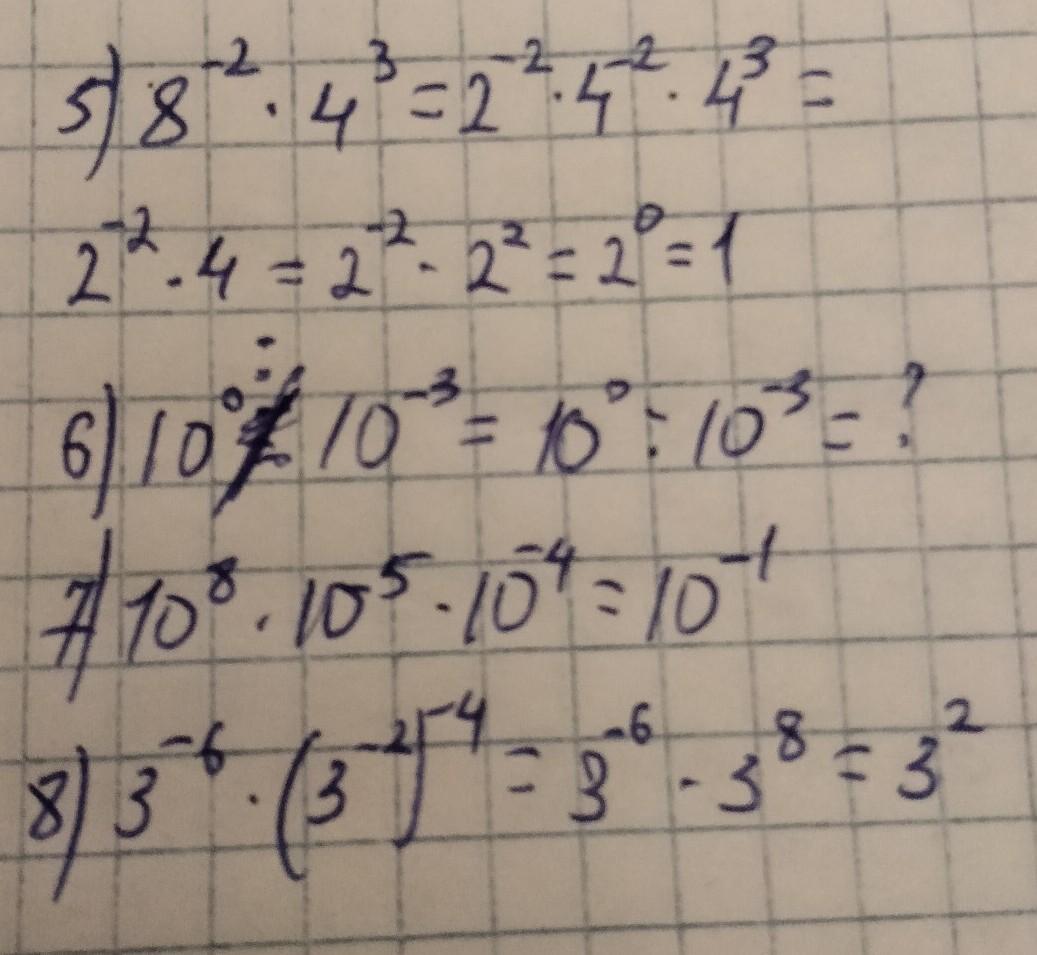 5) 8⁻² · 4³ = 2⁻² · 4⁻² · 4³ =
2⁻² · 4 = 2⁻² · 2² = 2⁰ = 1
6) 10⁰ : 10⁻³ = 10⁰ : 10⁻³ = ?
7) 10⁸ · 10⁵ · 10⁻⁴ = 10⁻¹
8) 3⁻⁶ · (3⁻²)⁻⁴ = 3⁻⁶ · 3⁸ = 3²